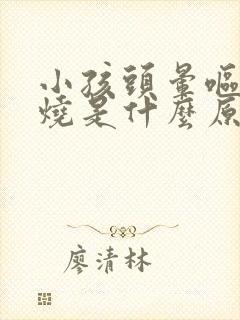 小孩頭暈嘔
燒是什麼原
廖清林